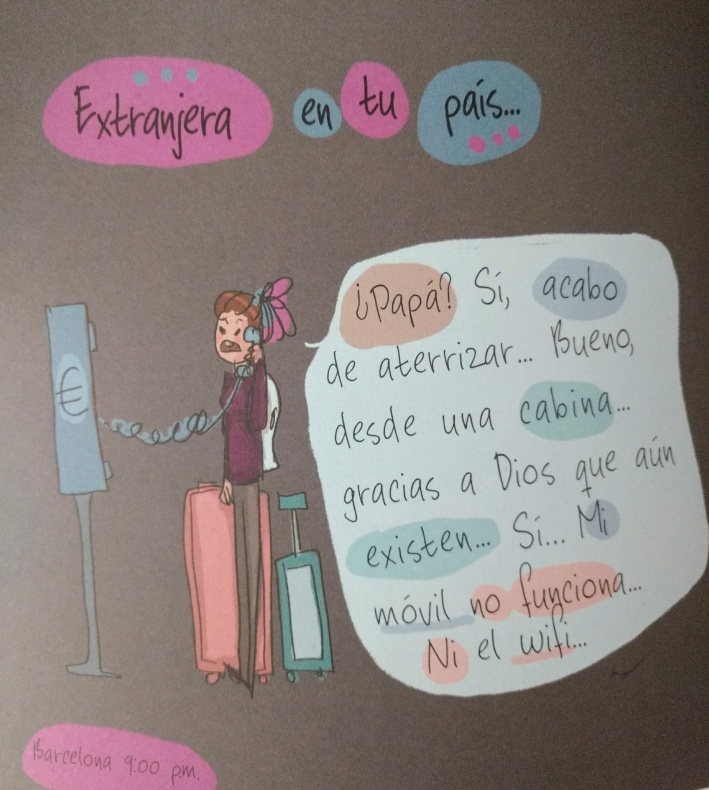 Extranjera en tu país...
¿Papá? Sí, acabo
de aterrizar... Bueno,
desde una cabina...
gracias a Dios que aún
existen... Sí... Mi
móvil no funciona...
Ni el wifi...
€
Barcelona 9:00 pm.